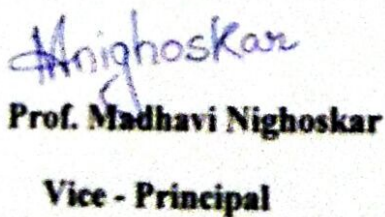 Nighoskar
Prof. Madhavi Nighoskar
Vice - Principal